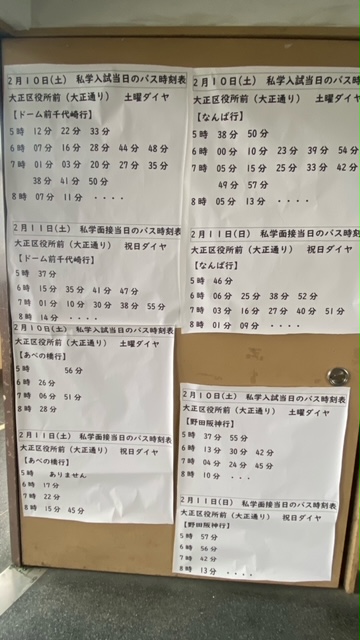 2月10日(土) 私学入試当日のバス時刻表
大正区役所前(大正通り) 土曜ダイヤ
【ドーム前千代崎行】
5時 12分 22分 33分
6時 07分 16分 28分 44分 48分
7時 01分 03分 20分 27分 35分
38分 41分 50分
8時 07分 11分 ・・・・
2月11日(土) 私学面接当日のバス時刻表
大正区役所前(大正通り) 祝日ダイヤ
【ドーム前千代崎行】
5時 37分
6時 15分 35分 41分 47分
7時 01分 10分 30分 38分 55分
8時 14分 ・・・・
2月10日(土) 私学入試当日のバス時刻表
大正区役所前(大正通り) 土曜ダイヤ
【あべの橋行】
5時 56分
6時 26分
7時 06分 51分
8時 28分
2月11日(土) 私学面接当日のバス時刻表
大正区役所前(大正通り) 祝日ダイヤ
【あべの橋行】
5時 ありません
6時 17分
7時 22分
8時 15分 45分
2月10日(土) 私学入試当日のバス時刻
大正区役所前(大正通り) 土曜ダイヤ
【なんば行】
5時 38分 50分
6時 00分 10分 23分 39分 54分
7時 05分 15分 25分 33分 42分
49分 57分
8時 05分 13分 ・・・・
2月11日(日) 私学面接当日のバス時刻
大正区役所前(大正通り) 祝日ダイヤ
【なんば行】
5時 46分
6時 06分 25分 38分 52分
7時 03分 16分 27分 40分 51分
8時 01分 09分 ・・・・
2月10日(土) 私学入試当日のバス時刻表
大正区役所前(大正通り) 土曜ダイヤ
【野田阪神行】
5時 37分 55分
6時 13分 30分 42分
7時 04分 24分 45分
8時 10分 ・・・
2月11日(日) 私学面接当日のバス時刻表
大正区役所前(大正通り) 祝日ダイヤ
【野田阪神行】
5時 57分
6時 56分
7時 42分
8時 13分 ・・・・